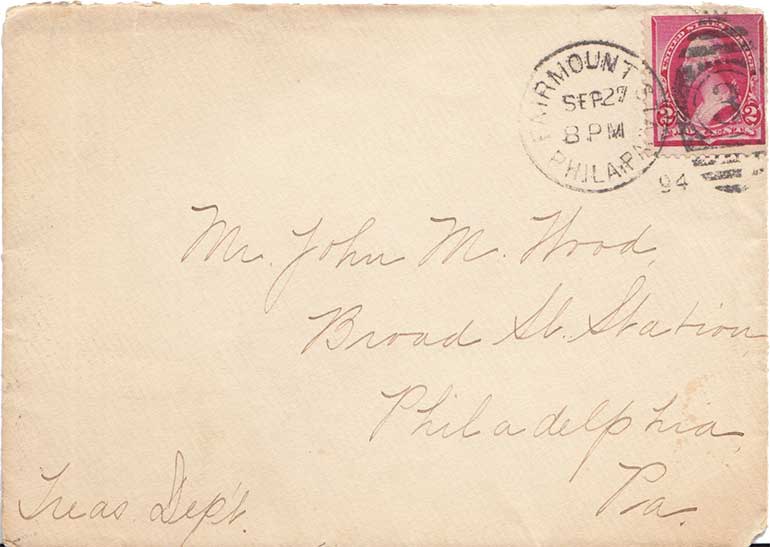 UNITED STATES POSTAGE
2 2
CENTS
FAIRMOUNT STA.
SEP 27
8 PM
PHILA. PA.
94
Mr. John M. Wood,
Broad St. Station,
Philadelphia,
Pa.
Treas. Dep't.